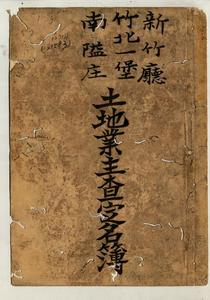 新竹廳
竹北一堡
南隘庄
土地業主查定名簿